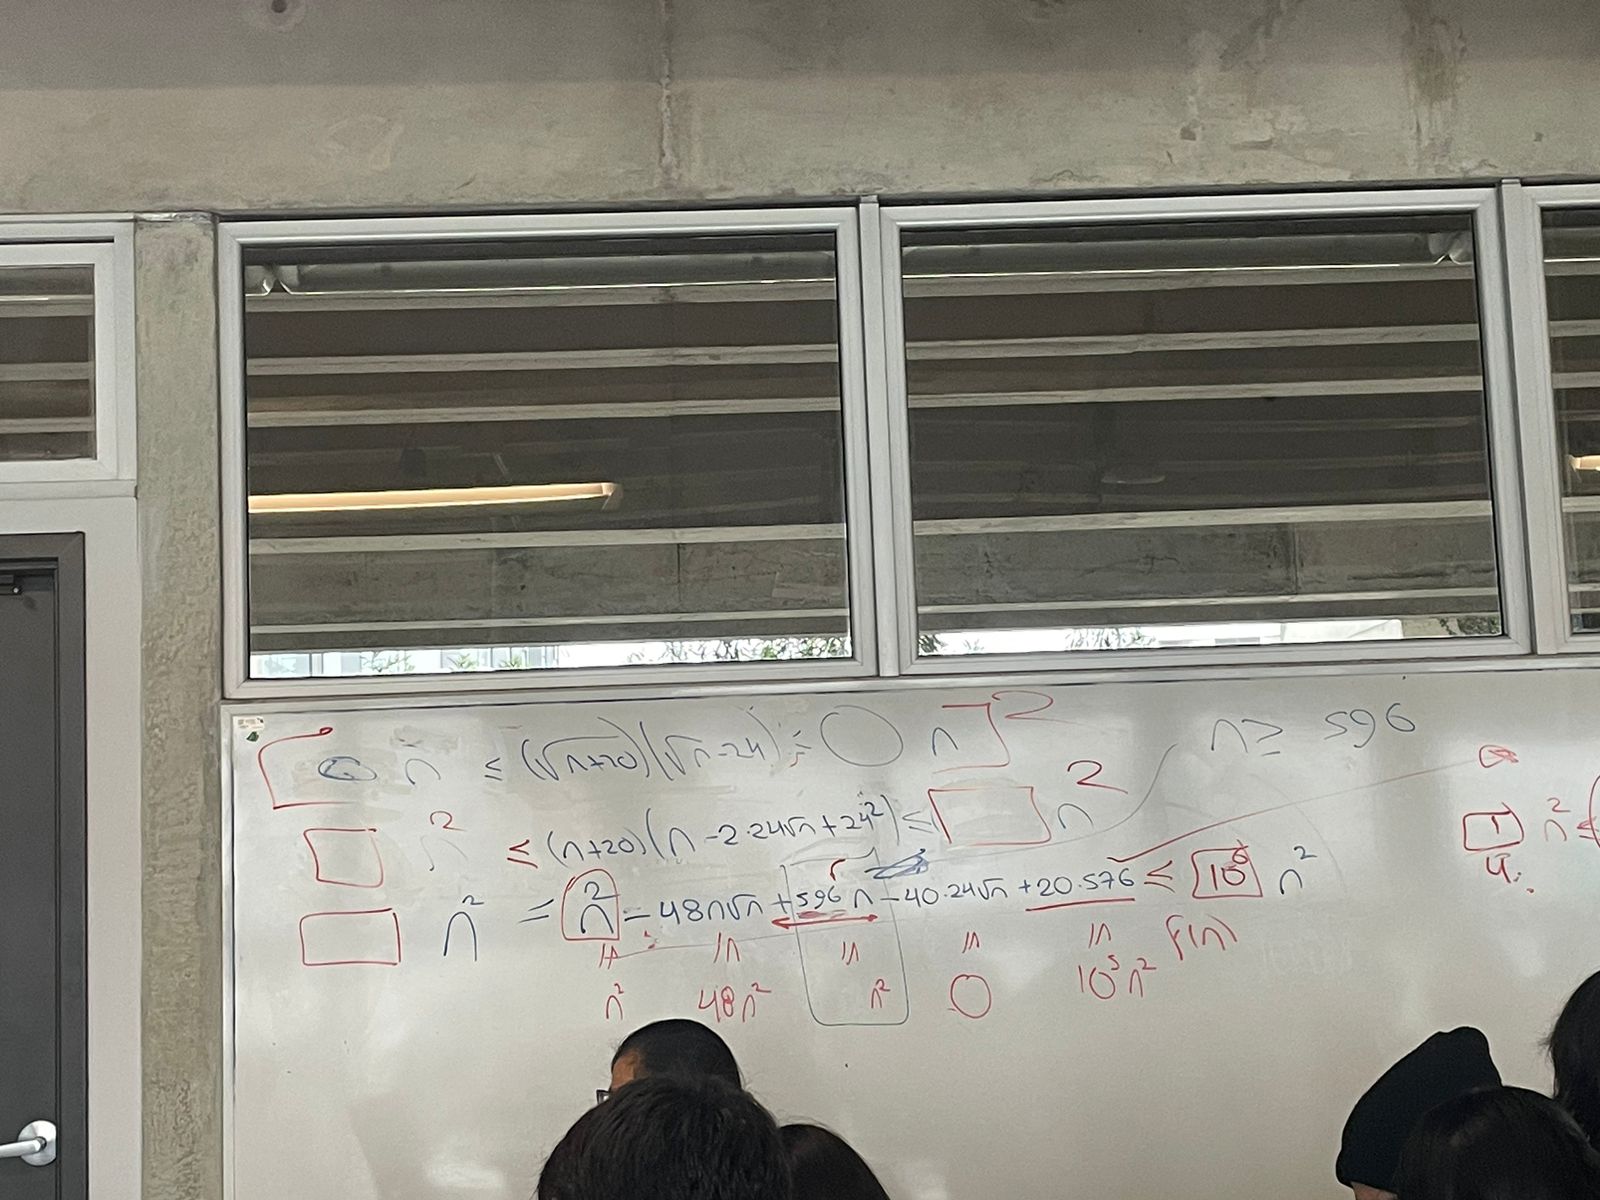 n ≤ (√n+20)(√n-24) ≤ ◯ n ]²  n ≥ 596
□ n² ≤ (n+20)(n - 2·24√n + 24²) ≤ □ n²
□ n² ≤ n² - 48n√n + 596 n - 40·24√n + 20·576 ≤ 10⁶ n²
1 n² ≤
4
f(n)
n² 48n² n² ◯ 10⁵ n²